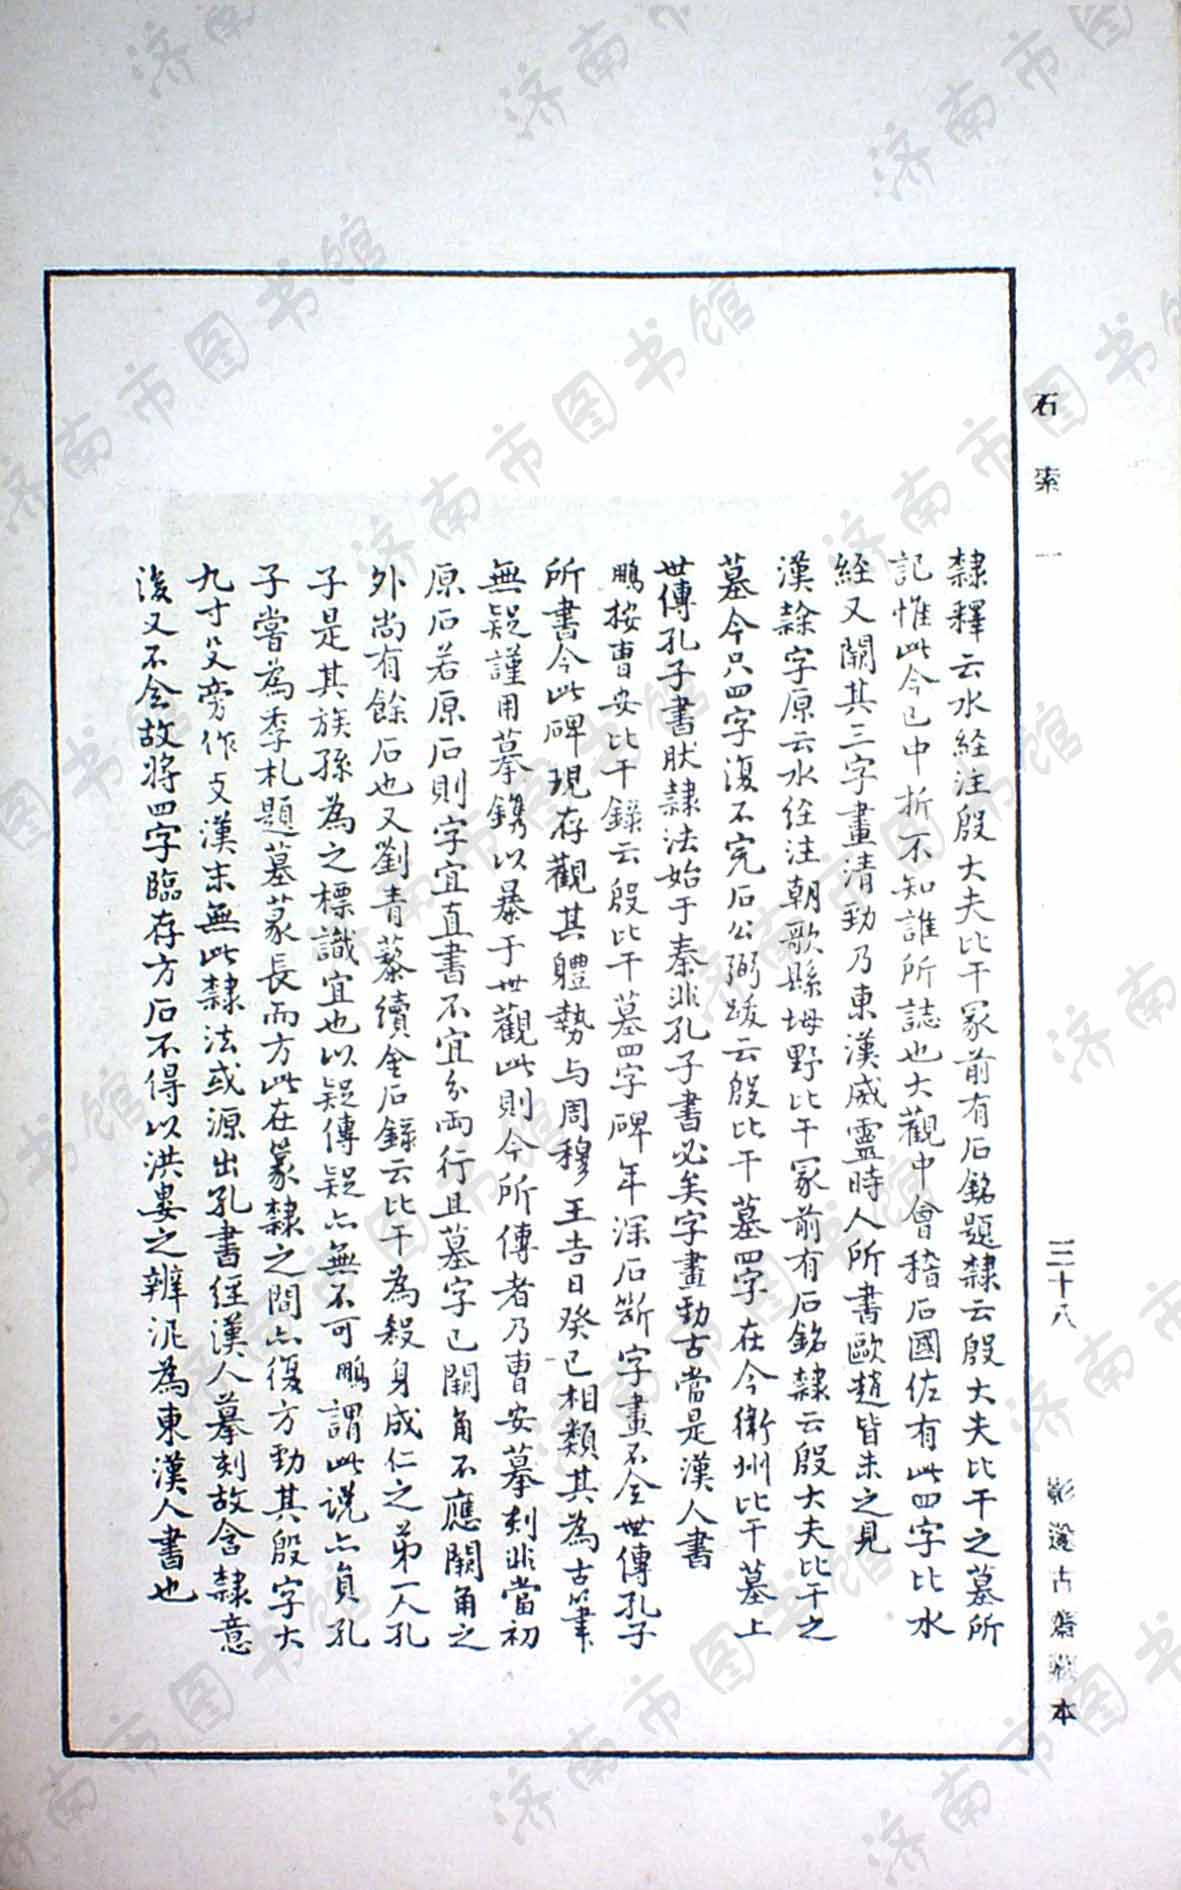 石索一
三十八
影遂古齋藏本
隸釋云水經注殷大夫比干冢前有石銘題隸云殷大夫比干之墓所
記惟此今已中折不知誰所誌也大觀中會稽石國佐有此四字比水
經又闕其三字畫清勁乃東漢威靈時人所書歐趙皆未之見
漢隸字原云水經注朝歌縣坶野比干冢前有石銘隸云殷大夫比干之
墓今只四字復不完石公弼跋云殷比干墓四字在今衛州比干墓上
世傳孔子書肰隸法始于秦非孔子書必矣字畫勁古當是漢人書
鵬按曹安比干錄云殷比干墓四字碑年深石斷字畫不全世傳孔子
所書今此碑現存觀其體勢与周穆王吉日癸巳相類其為古筆
無疑謹用摹鐫以暴于世觀此則今所傳者乃曹安摹刻非當初
原石若原石則字宜直書不宜分兩行且墓字已闕角不應闕角之
外尚有餘石也又劉青藜續金石錄云比干為殺身成仁之弟一人孔
子是其族孫為之標識宜也以疑傳疑亦無不可鵬謂此説亦負孔
子嘗為季札題墓篆長而方此在篆隸之間亦復方勁其殷字大
九寸殳旁作攴漢末無此隸法或源出孔書經漢人摹刻故含隸意
後又不全故將四字臨存方石不得以洪婁之辨泥為東漢人書也